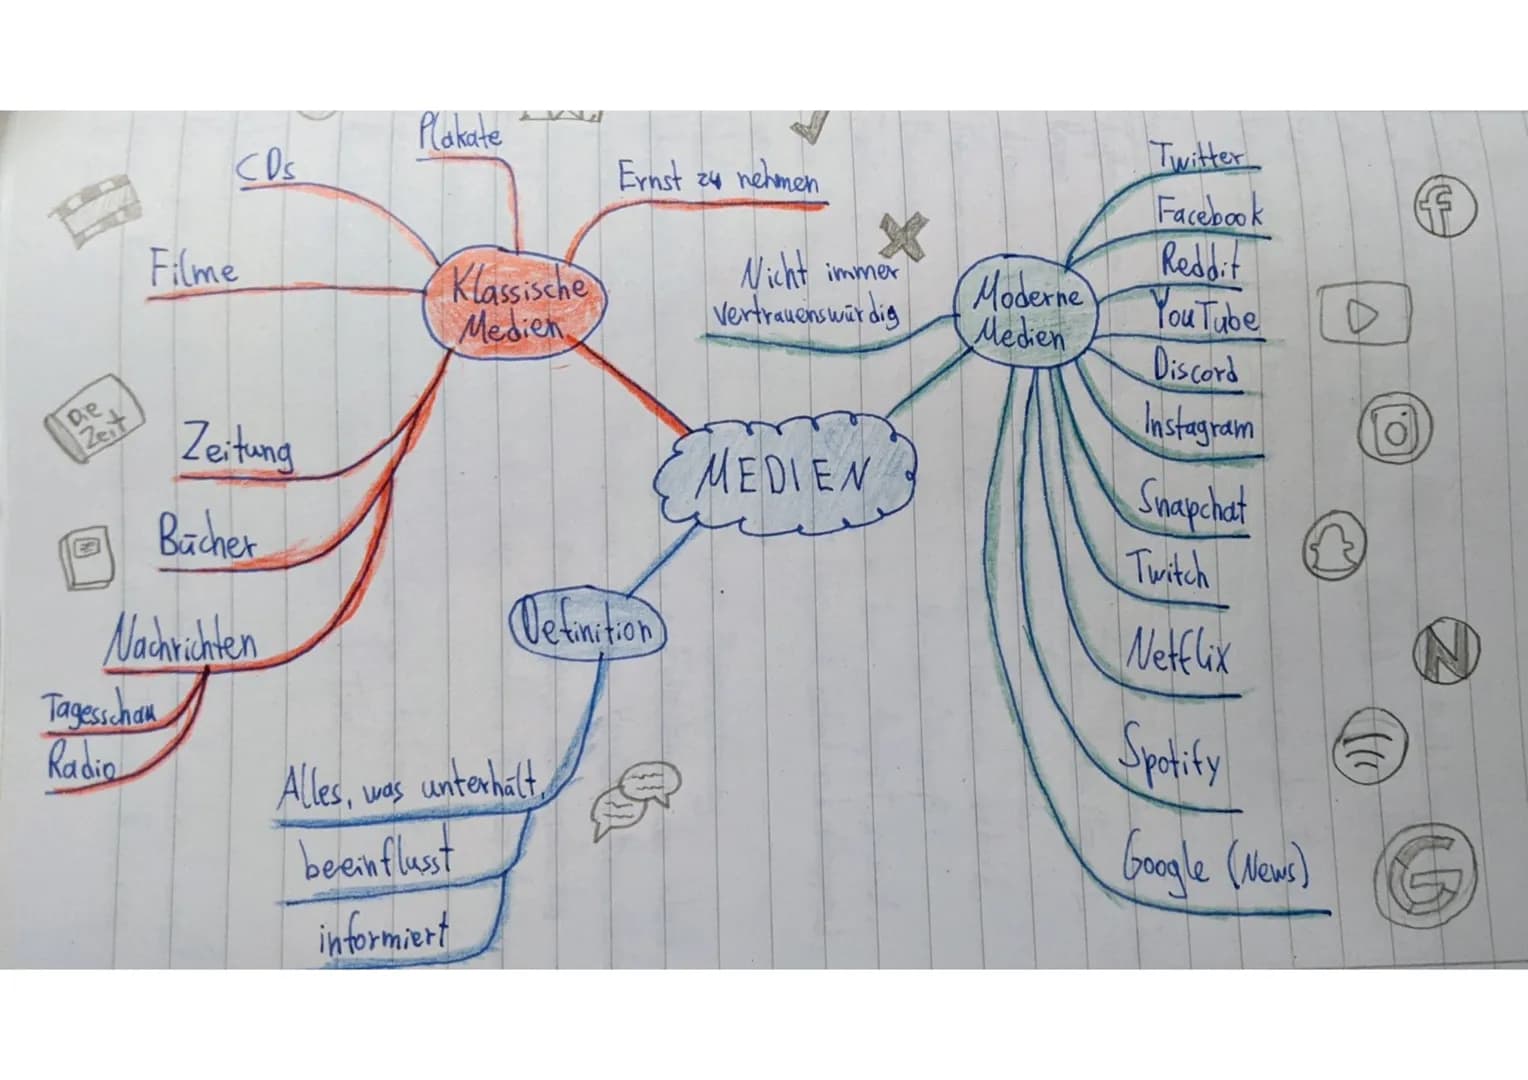 Plakate
CDs
Ernst zu nehmen
Filme
Klassische
Medien
Die
Zeit
Zeitung
Bücher
Nachrichten
Tagesschau
Radio
MEDIEN
Definition
Alles, was unterhält,
beeinflusst
informiert
Nicht immer
vertrauenswürdig
Moderne
Medien
Twitter
Facebook
Reddit
YouTube
Discord
Instagram
Snapchat
Twitch
Netflix
Spotify
Google (News)
f
N
G